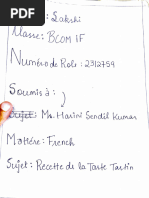 : Sakshi
Classe: BCOM IF
Numéro de Rolo : 2312759
Soumis à :
Sujet: Ms. Harini Sendil Kumar
Matière: French
Sujet: Recette de la Tarte Tartin